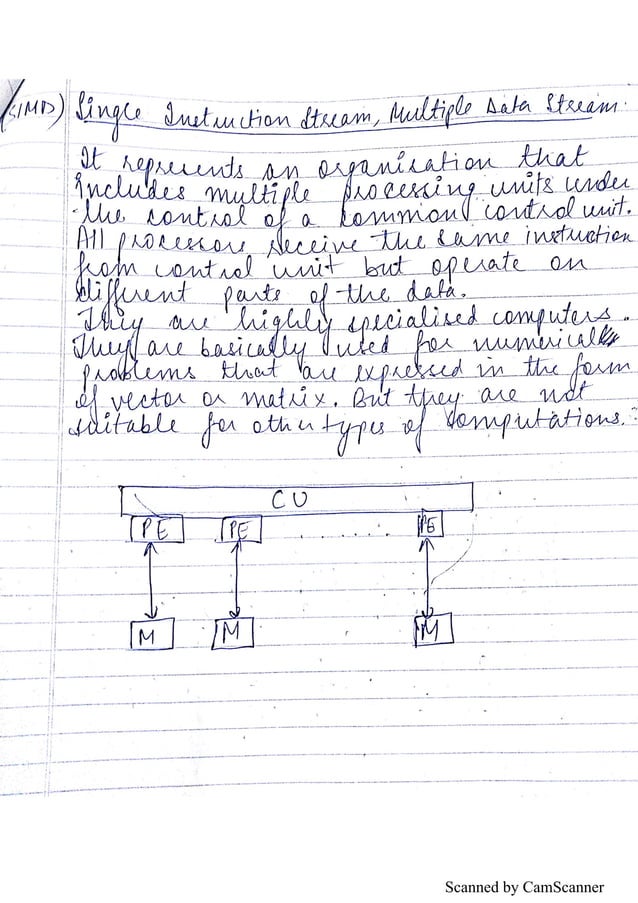 (SIMD) Single Instruction Stream, Multiple Data Stream.
It represents an organisation that
includes multiple processing units under
the control of a common control unit.
All processors receive the same instruction
from control unit but operate on
different parts of the data.
They are highly specialised computers.
They are basically used for numerical
problems that are expressed in the form
of vector or matrix. But they are not
suitable for other types of computations.
CU
PE PE . . . . . . . PE
M M M
Scanned by CamScanner